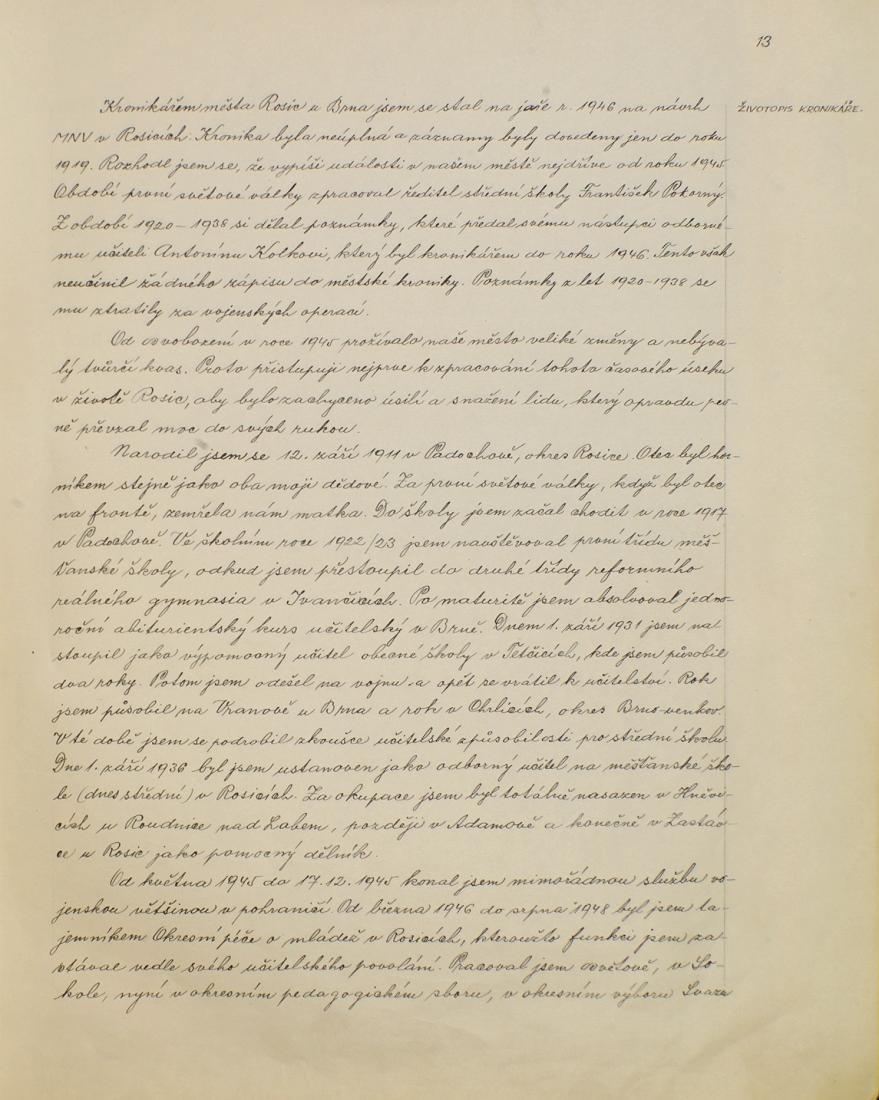 13
ŽIVOTOPIS KRONIKÁŘE.
Kronikářem města Rosic u Brna jsem se stal na jaře r. 1946 na návrh
MNV v Rosicích. Kronika byla neúplná a záznamy byly dovedeny jen do roku
1919. Rozhodl jsem se, že vypíši události v našem městě nejdříve od roku 1945
Období první světové války zpracoval ředitel střední školy František Pokorný.
Z období 1920-1938 si dělal poznámky, které předal svému nástupci odborné-
mu učiteli Antonínu Kolkovi, který byl kronikářem do roku 1946. Tento však
neučinil žádného zápisu do městské kroniky. Poznámky z let 1920-1938 se
mu ztratily za vojenských operací.
Od osvobození v roce 1945 prožívalo naše město veliké změny a nebýva-
lý tvůrčí kvas. Proto přistupuji nejprve k zpracování tohoto časového úseku
v životě Rosic, aby bylo zachyceno úsilí a snažení lidu, který opravdu pev-
ně převzal moc do svých rukou.
Narodil jsem se 12. září 1911 v Padochově, okres Rosice. Otec byl hor-
níkem stejně jako oba moji dědové. Za první světové války, když byl otec
na frontě, zemřela nám matka. Do školy jsem začal chodit v roce 1917
v Padochově. Ve školním roce 1922/23 jsem navštěvoval první třídu měš-
ťanské školy, odkud jsem přestoupil do druhé třídy reformního
reálného gymnasia v Ivančicích. Po maturitě jsem absolvoval jedno-
roční abiturientský kurs učitelský v Brně. Dnem 1. září 1931 jsem na-
stoupil jako výpomocný učitel obecné školy v Tetčicích, kde jsem působil
dva roky. Potom jsem odešel na vojnu a opět se vrátil k učitelství. Rok
jsem působil na Vranově u Brna a rok v Chrlicích, okres Brno-venkov.
V té době jsem se podrobil zkoušce učitelské způsobilosti pro střední školu.
Dne 1. září 1936 byl jsem ustanoven jako odborný učitel na měšťanské ško-
le (dnes střední) v Rosicích. Za okupace jsem byl totálně nasazen v Hněvi-
cích u Roudnice nad Labem, později v Adamově a konečně v Zastáv-
ce u Rosic jako pomocný dělník.
Od května 1945 do 17.12.1945 konal jsem mimořádnou službu vo-
jenskou většinou v pohraničí. Od března 1946 do srpna 1948 byl jsem ta-
jemníkem Okresní péče o mládež v Rosicích, kteroužto funkci jsem za-
stával vedle svého učitelského povolání. Pracoval jsem osvětově, v So-
kole, nyní v okresním pedagogickém sboru, v okresním výboru Svazu